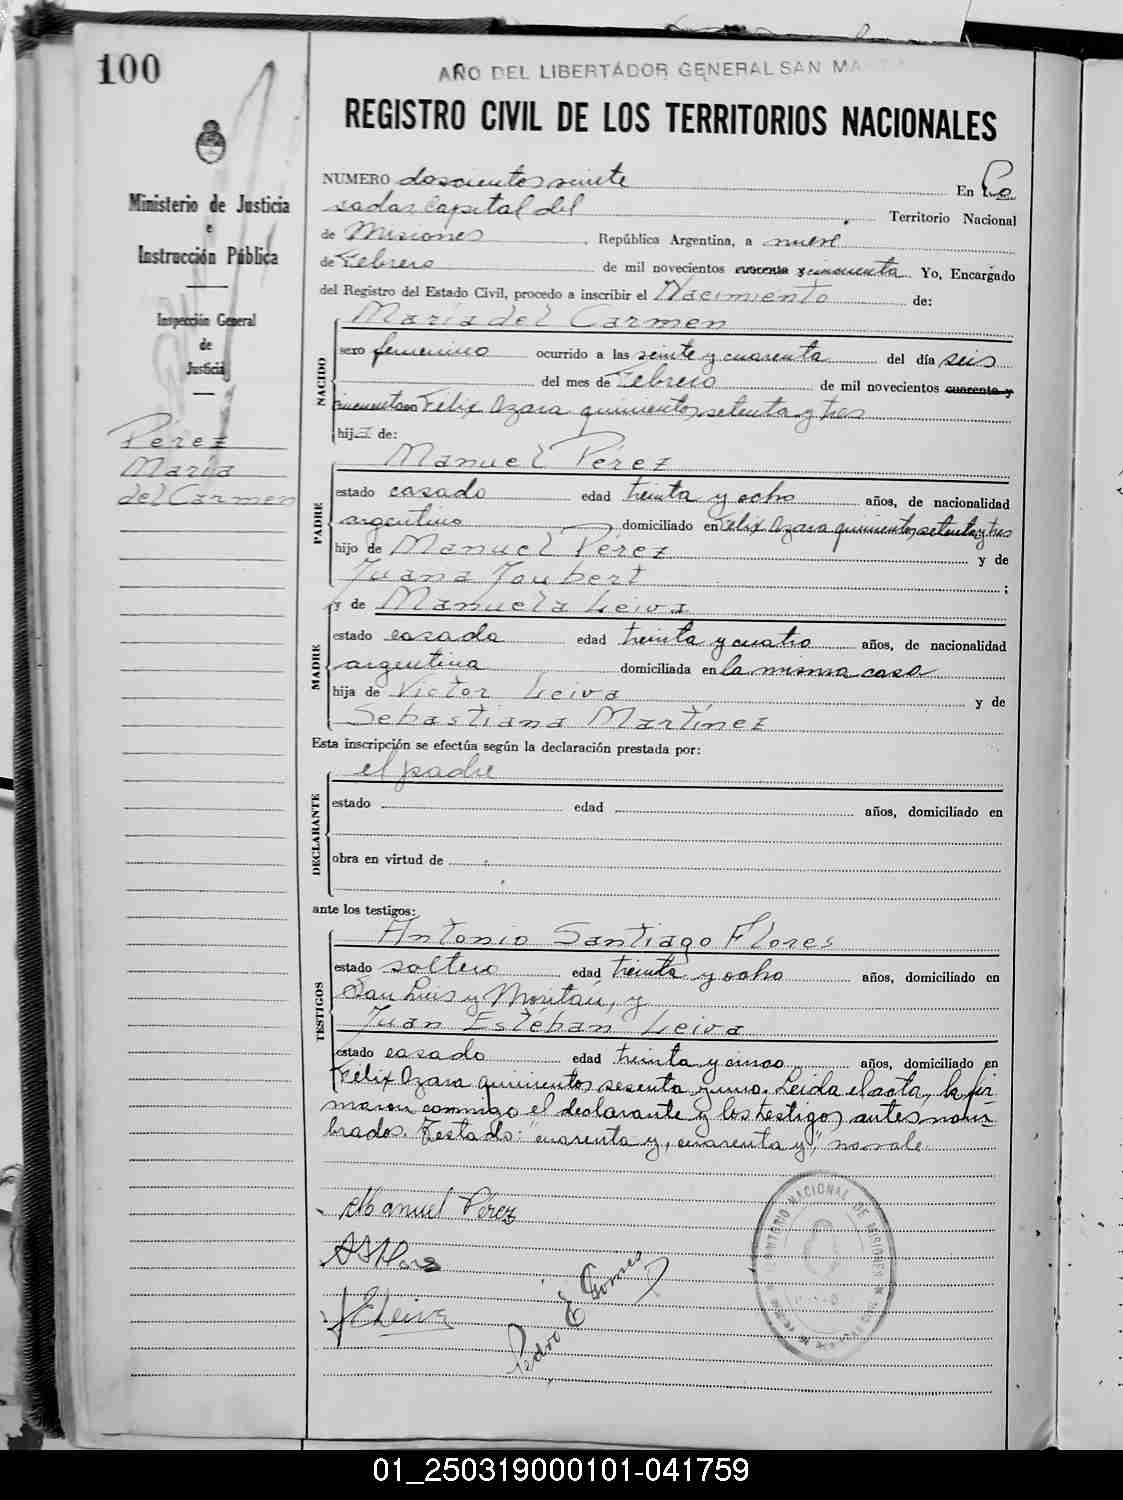 100
AÑO DEL LIBERTADOR GENERAL SAN MA
REGISTRO CIVIL DE LOS TERRITORIOS NACIONALES
Ministerio de Justicia
e
Instrucción Pública
Inspección General
de
Justicia
Pérez
María
del Carmen
NUMERO doscientos veinte En Po
sadas capital del Territorio Nacional
de Misiones, República Argentina, a nueve
de Febrero de mil novecientos cuarenta y cincuenta Yo, Encargado
del Registro del Estado Civil, procedo a inscribir el Nacimiento de:
NACIDO
María del Carmen
sexo femenino ocurrido a las veinte y cuarenta del día seis
del mes de Febrero de mil novecientos cuarenta y
cincuenta en Félix Azara quinientos setenta y tres
hija de:
PADRE
Manuel Pérez
estado casado edad treinta y ocho años, de nacionalidad
argentino domiciliado en Félix Azara quinientos setenta y tres
hijo de Manuel Pérez y de
Juana Joubert ;
MADRE
y de Manuela Leiva
estado casada edad treinta y cuatro años, de nacionalidad
argentina domiciliada en la misma casa
hija de Victor Leiva y de
Sebastiana Martínez
Esta inscripción se efectúa según la declaración prestada por:
DECLARANTE
el padre
estado edad años, domiciliado en
obra en virtud de
ante los testigos:
TESTIGOS
Antonio Santiago Flores
estado soltero edad treinta y ocho años, domiciliado en
San Luis y Moritán, y
Juan Estéban Leiva
estado casado edad treinta y cinco años, domiciliado en
Félix Azara quinientos sesenta y uno. Leida el acta, la fir-
maron conmigo el declarante y los testigos antes nom-
brados. Testado: "cuarenta y, cuarenta y", no vale
Manuel Pérez
ASFlores
JELeiva
Pedro E Gomes
TERRITORIO NACIONAL DE MISIONES
01_250319000101-041759